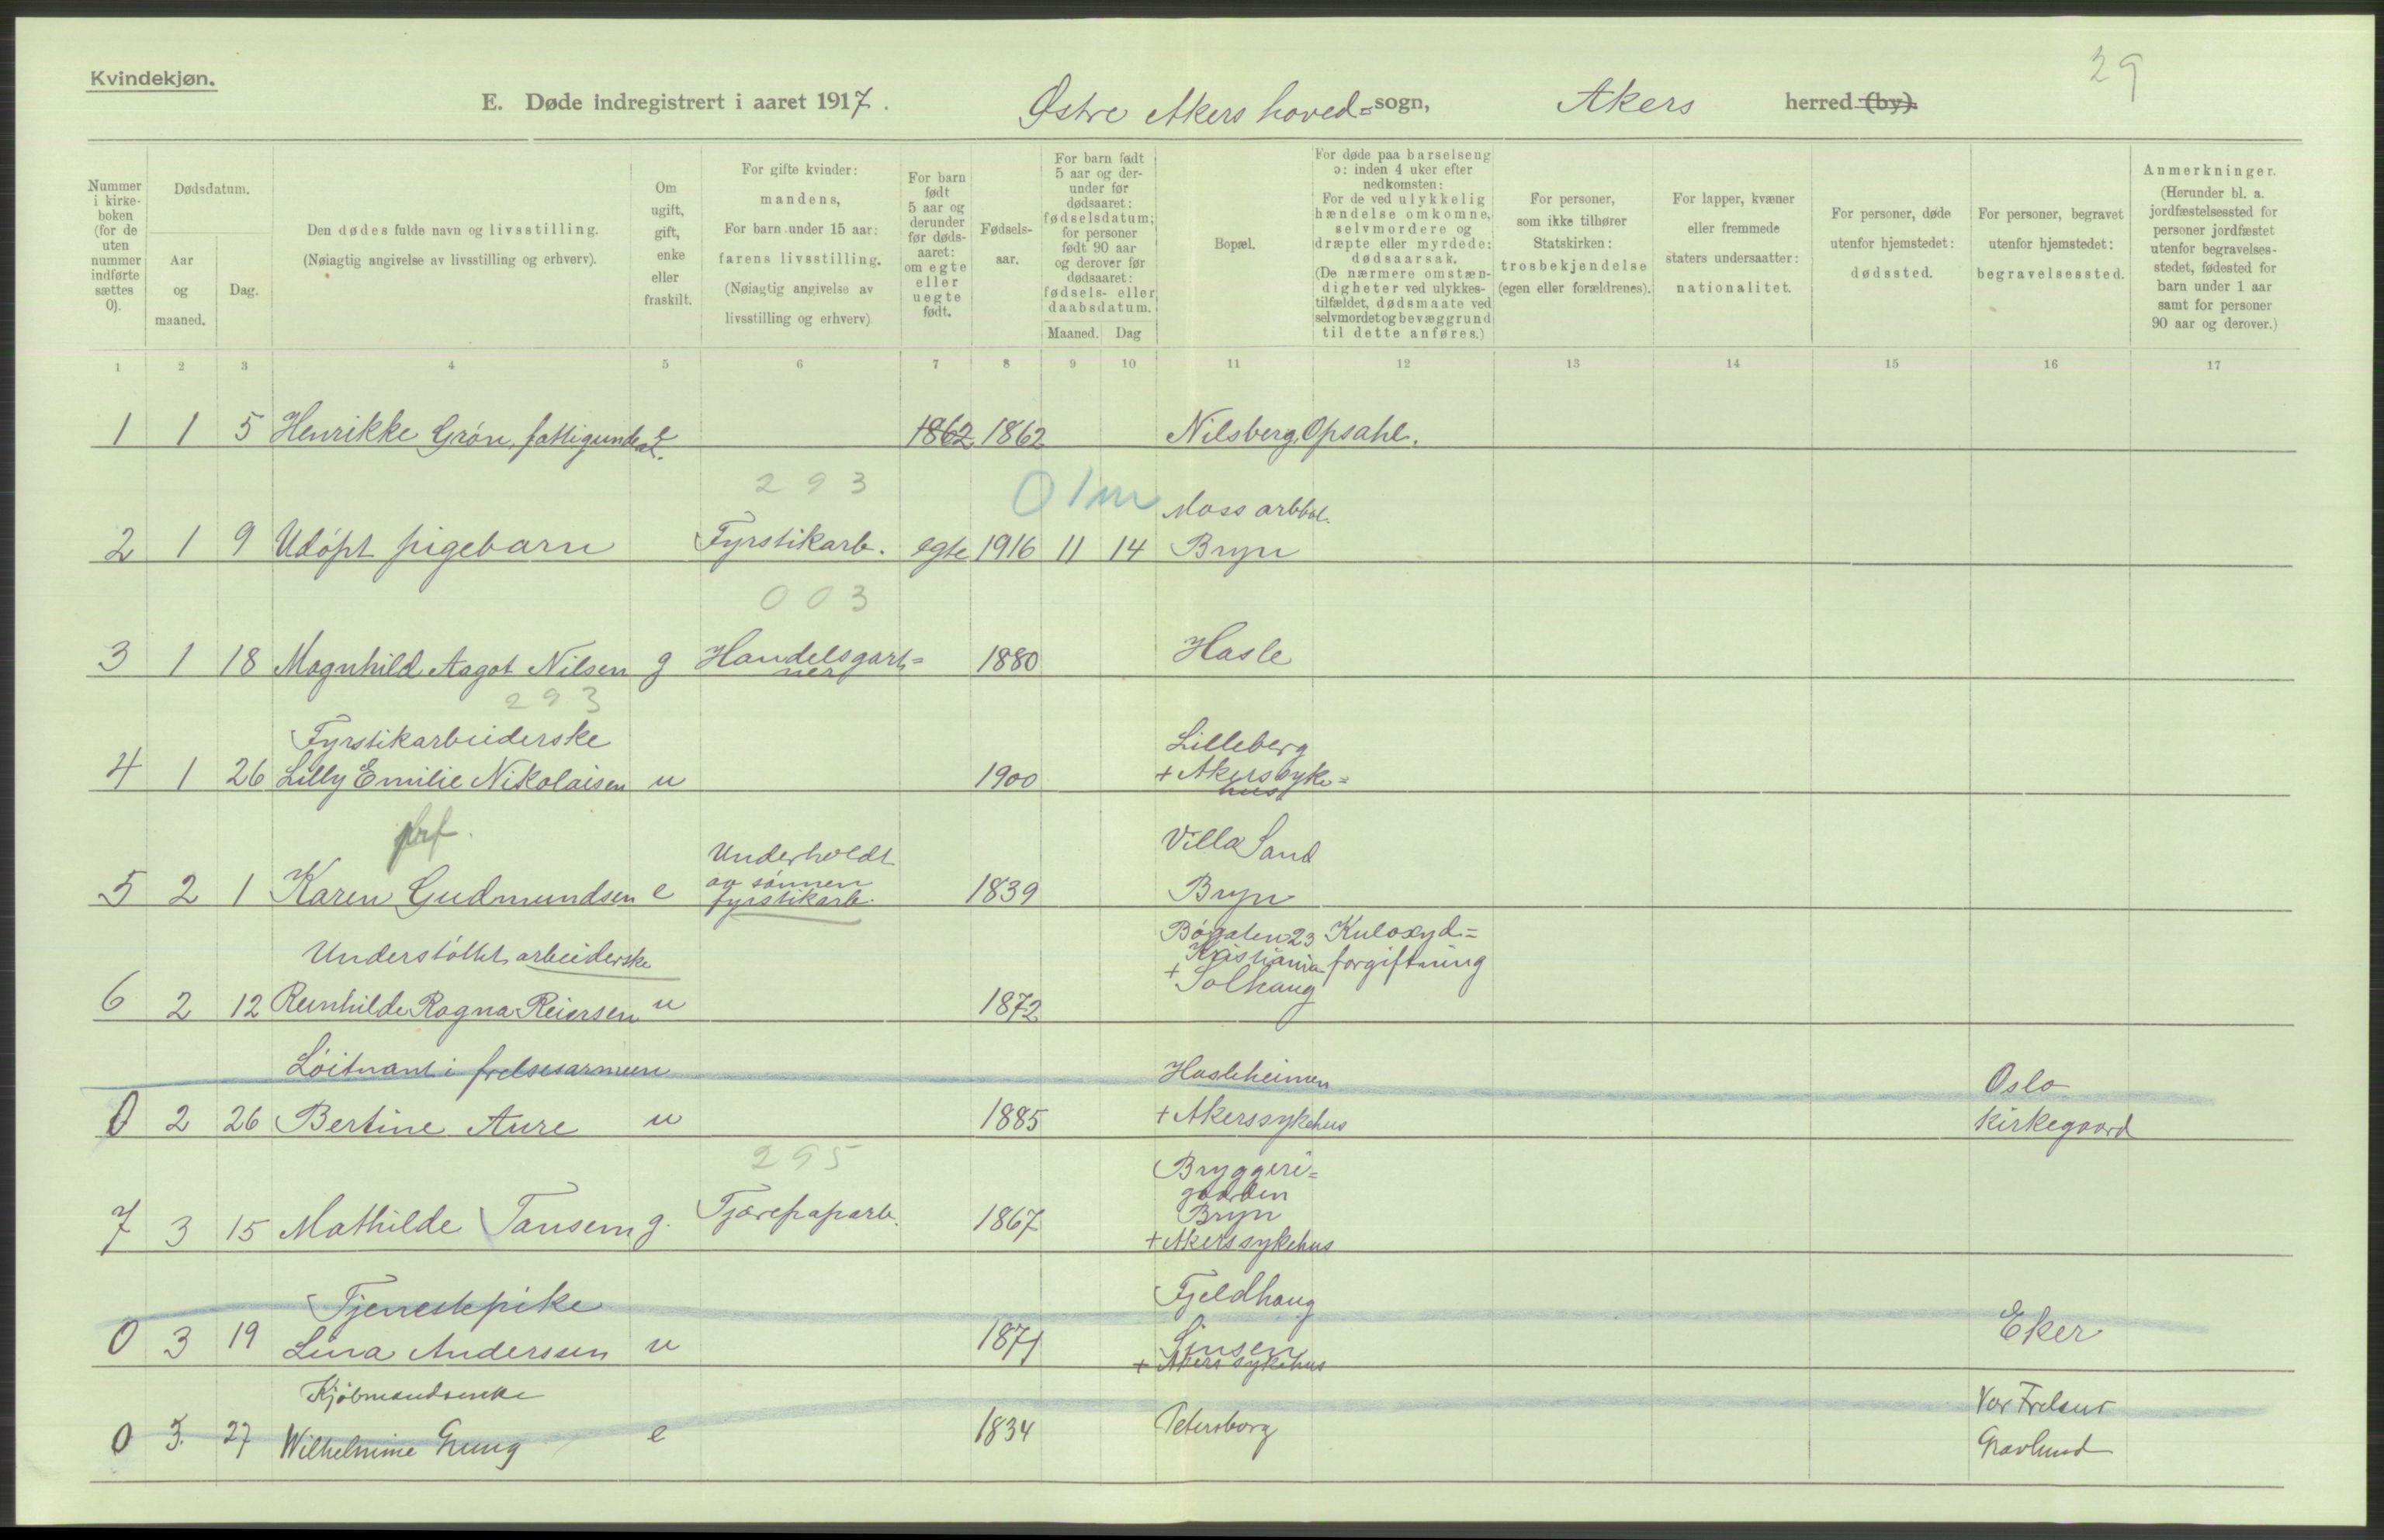 29
Kvindekjøn.
E. Døde indregistrert i aaret 1917. Østre Akers hoved=sogn, Akers herred (by).
Nummer i kirkeboken (for de uten nummer indførte sættes 0).
Dødsdatum.
Aar og maaned.
Dag.
Den dødes fulde navn og livsstilling.
(Nøiagtig angivelse av livsstilling og erhverv).
Om ugift, gift, enke eller fraskilt.
For gifte kvinder: mandens,
For barn under 15 aar: farens livsstilling.
(Nøiagtig angivelse av livsstilling og erhverv)
For barn født 5 aar og derunder før dødsaaret: om egte eller uegte født.
Fødselsaar.
For barn født 5 aar og derunder før dødsaaret: fødselsdatum; for personer født 90 aar og derover før dødsaaret: fødsels- eller daabsdatum.
Maaned. Dag
Bopæl.
For døde paa barselseng ɔ: inden 4 uker efter nedkomsten: For de ved ulykkelig hændelse omkomne, selvmordere og dræpte eller myrdede: dødsaarsak.
(De nærmere omstændigheter ved ulykkestilfældet, dødsmaate ved selvmordet og bevæggrund til dette anføres.)
For personer, som ikke tilhører Statskirken: trosbekjendelse (egen eller forældrenes).
For lapper, kvæner eller fremmede staters undersaatter: nationalitet.
For personer, døde utenfor hjemstedet: dødssted.
For personer, begravet utenfor hjemstedet: begravelsessted.
Anmerkninger.
(Herunder bl. a. jordfæstelsessted for personer jordfæstet utenfor begravelsesstedet, fødested for barn under 1 aar samt for personer 90 aar og derover.)
1 2 3 4 5 6 7 8 9 10 11 12 13 14 15 16 17
1 1 5 Henrikke Grøn, fattigunderst. 1862 1862 Nilsberg, Opsahl.
293 0 1m Moss arbbol.
2 1 9 Udøpt pigebarn Fyrstikarb. egte 1916 11 14 Bryn
003
3 1 18 Magnhild Aagot Nilsen g Handelsgart= 1880 Hasle
ner
293
Fyrstikarbeiderske Lilleberg
4 1 26 Lilly Emilie Nikolaisen u 1900 + Akers syke=
hus
Underholdt Villa Sand
av sønnen
5 2 1 Karen Gudmundsen e fyrstikarb. 1839 Bryn
Bøgaten 23 Kuloxyd=
Understøttet arbeiderske Kristiania forgiftning
+ Solhaug
6 2 12 Reinhilde Ragna Reiersen u 1872
Løitnant i frelsesarmeen Hasleheimen Oslo
0 2 26 Bertine Aure u 1885 + Akers sykehus kirkegaard
295 Bryggeri=
gaarden
7 3 15 Mathilde Tansem g. Tjærepaparb. 1867 Bryn
+ Akers sykehus
Tjenestepike Fjeldhaug
0 3 19 Lina Anderssen u 1871 Sinsen Eker
+ Akers sykehus
Kjøbmandsenke Vor Frelsers
0 3. 27 Wilhelmine Grung e 1834 Petersborg Gravlund